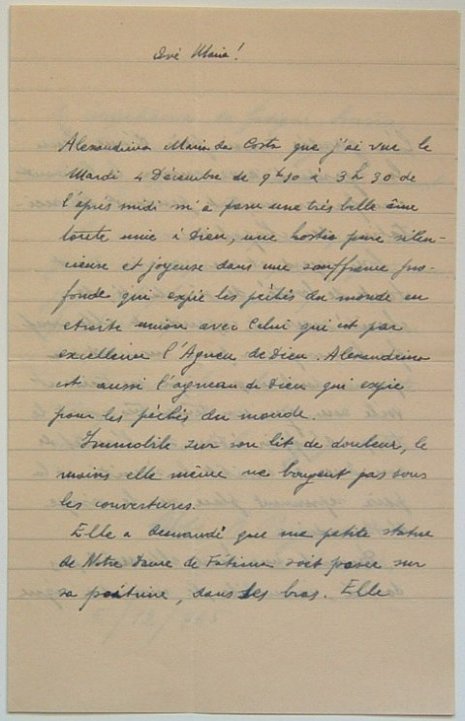 Avé Maria!
Alexandrina Maria da Costa que j'ai vue le
Mardi 4 Décembre de 9h30 à 3h 30 de
l'après midi m'a paru une très belle âme
toute unie à Dieu, une hostie pure silen-
cieuse et joyeuse dans une souffrance pro-
fonde qui expie les péchés du monde en
étroite union avec Celui qui est par
excellence l'Agneau de Dieu. Alexandrina
est aussi l'agneau de Dieu qui expie
pour les péchés du monde.
Immobile sur son lit de douleur, le
mains elle même ne bougent pas sous
les couvertures.
Elle a demandé que ma petite statue
de Notre Dame de Fatima soit posée sur
sa poitrine, dans ses bras. Elle